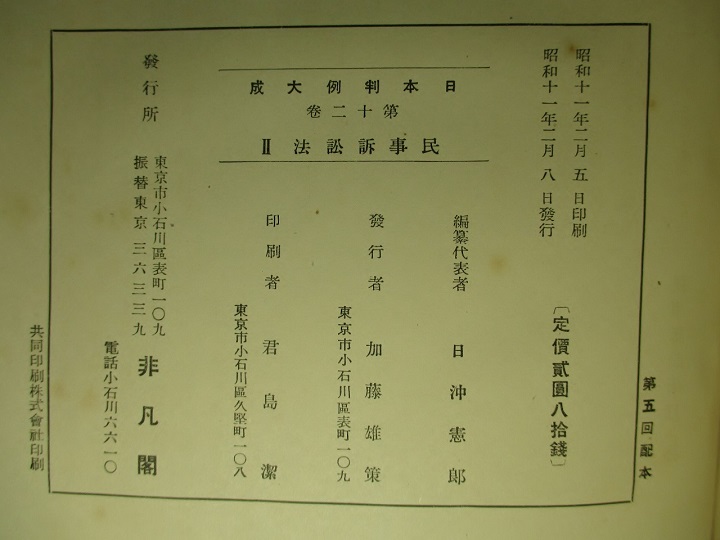 第五回配本
昭和十一年二月五日印刷
昭和十一年二月八日發行
〔定價貳圓八拾錢〕
日本判例大成
第十二卷
民事訴訟法Ⅱ
編纂代表者 日沖憲郎
發行者 加藤雄策
東京市小石川區表町一〇九
印刷者 君島潔
東京市小石川區久堅町一〇八
發行所
東京市小石川區表町一〇九
振替東京三六三三九
非凡閣
電話小石川六六一〇
共同印刷株式會社印刷